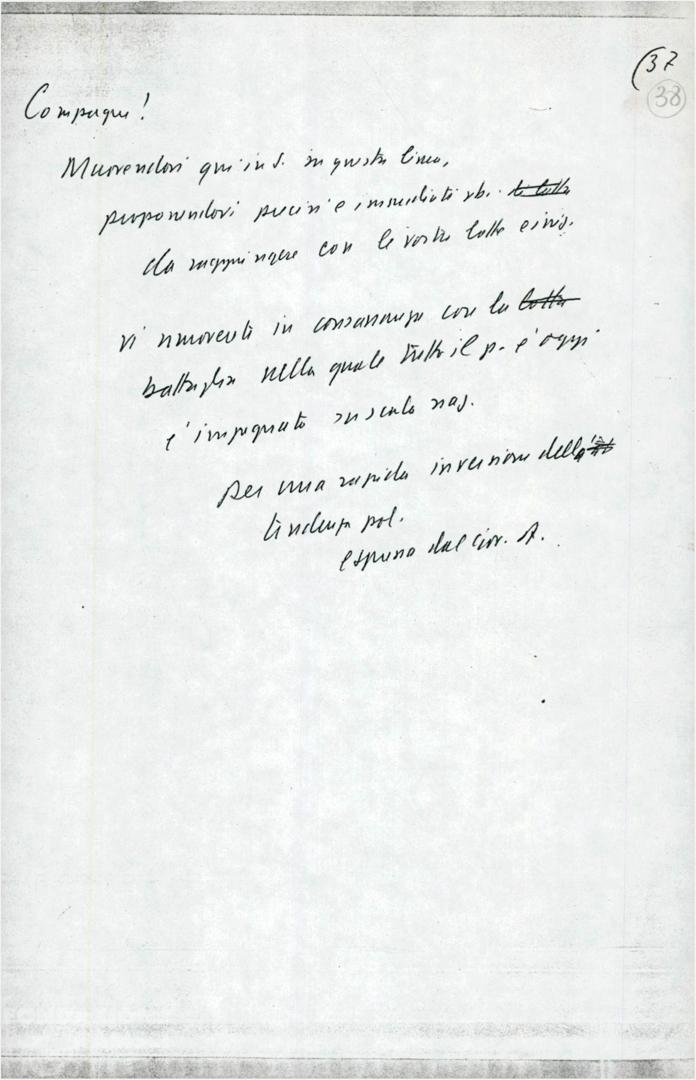 (37
38
Compagni!
Muovendovi qui in S. in questa linea,
proponendovi precisi e immediati ob. le lotte
da raggiungere con le vostre lotte e iniz.
vi muovete in consonanza con la lotta
battaglia nella quale tutto il p. è oggi
è impegnato su scala naz.
per una rapida inversione della
tendenza pol.
espressa dal Gov. A.